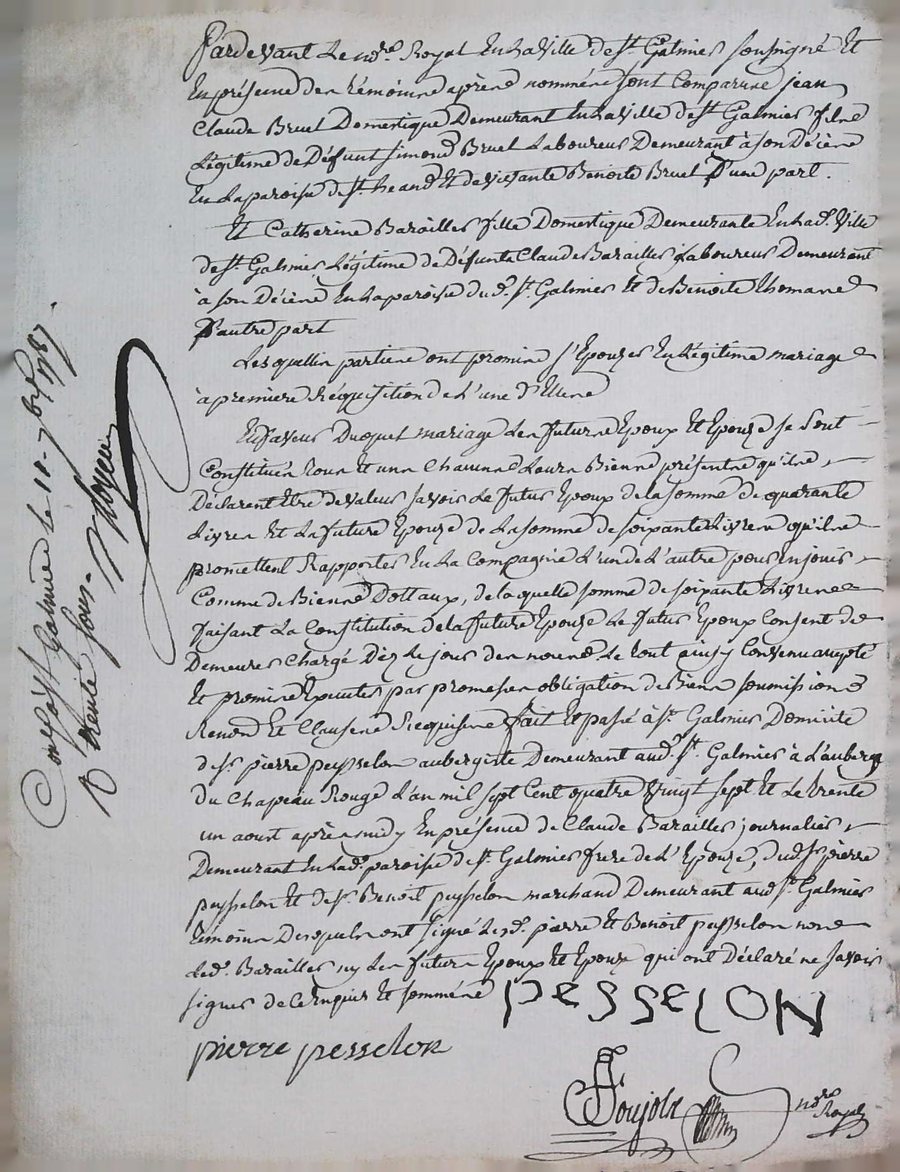 Pardevant Le no.re Royal En La Ville de St. Galmier soussigné Et
En présence des témoins après nommés sont Comparus jean
Claude Bruel Domestique Demeurant En La Ville de St. Galmier fils
Légitime de Défunt Simond Bruel Laboureur Demeurant à son Décès
En La paroisse de St. heand Et de vivante Benoite Bruel D'une part.
Et Catherine Barailler fille Domestique Demeurante En Lad. Ville
de St. Galmier Légitime de Défunt Claude Barailler Laboureur Demeurant
à son Décès En La paroisse dud. St. Galmier Et de Benoite thomas
D'autre part
Lesquelles parties ont promis s'Epouser En Légitime mariage
à première Réquisition de L'une d'Elles
En faveur Duquel mariage Les futurs Epoux Et Epouze se Sont
Constitués tous Et uns Chacuns Leurs Biens présents qu'ils
Déclarent Etre de valeur savoir Le futur Epoux de la somme de quarante
Livres Et La future Epouze de La somme de soixante Livres qu'ils
promettent Rapporter En La Compagnie L'un de L'autre pour En jouir
Comme de Biens Dottaux, de la quelle somme de soixante Livres
faisant La Constitution de la future Epouze Le futur Epoux Consent de
Demeurer Chargé Dès Le jour des noces. Le tout ainsy Convenu accepté
Et promis Executer par promesses obligation de Biens soumissions
Renond. Et Clauses Requises fait Et passé à St. Galmier Domicile
de Sr. pierre peysselon aubergiste Demeurant aud. St. Galmier à L'auberge
du Chapeau Rouge L'an mil sept Cent quatre vingt sept Et Le trente
un aoust après midy En présence de Claude Barailler journalier
Demeurant En Lad. paroisse de St. Galmier frere de L'Epouze, dud. Sr. pierre
peysselon Et de Sr. Benoit peysselon marchand Demeurant aud. St. Galmier
témoins Desquels ont signé Lesd. pierre Et Benoit peysselon non
Led. Barailler ny Les futurs Epoux Et Epouze qui ont Déclaré ne savoir
signer de Ce Enquis Et sommés
PESSELON
pierre pesselon
no.re Royal
Con.lé à St. Galmier le 11 7bre 1787.
R trente sous.